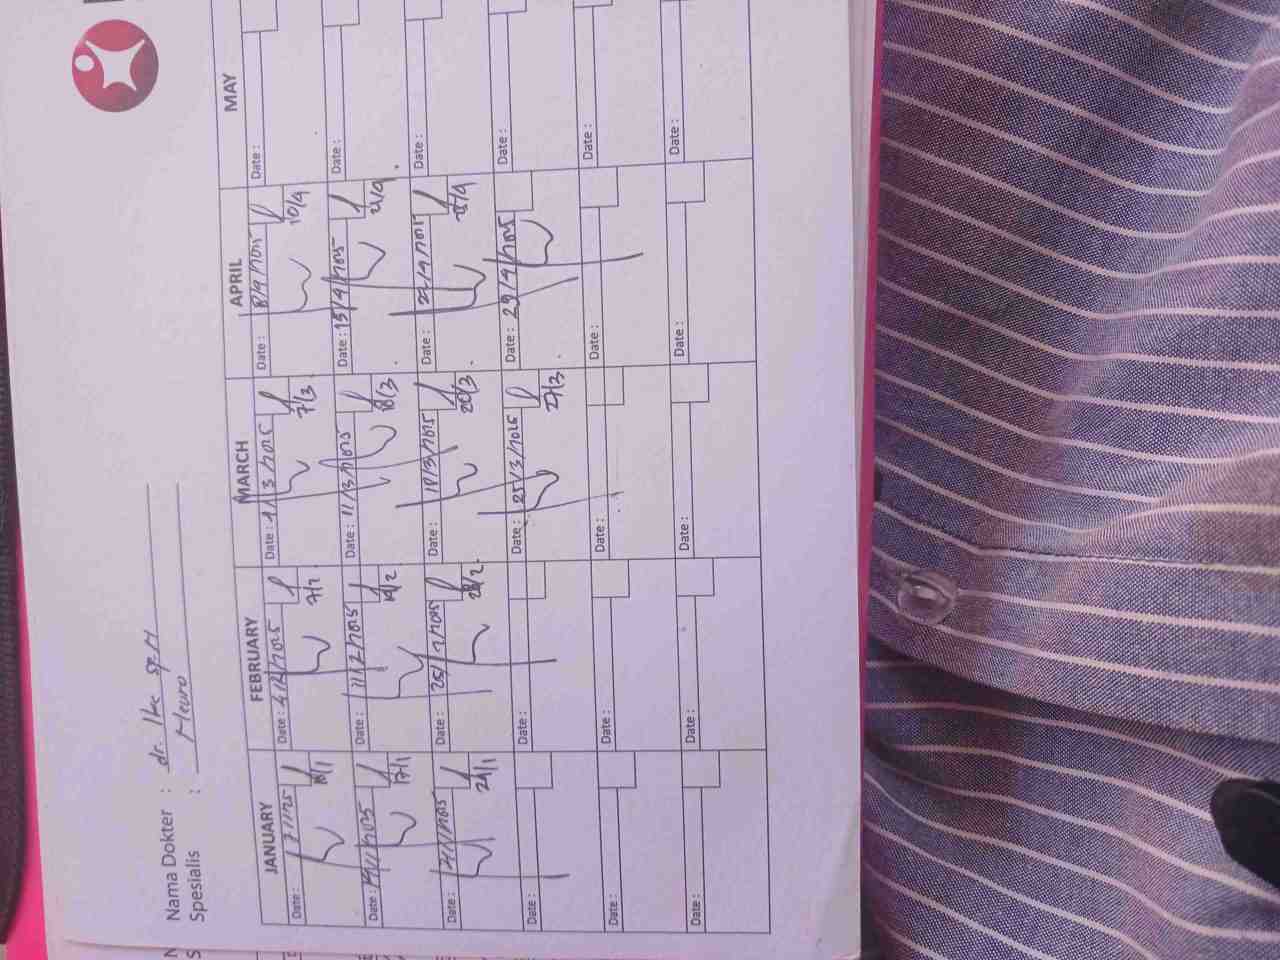 Nama Dokter : dr. Ike SpM
Spesialis : Neuro
JANUARY FEBRUARY MARCH APRIL MAY
Date : Date : 4/2/2025 Date : Date : 8/4/2025 Date :
7/2 7/3 10/4
Date : 14/1/2025 Date : 11/2/2025 Date : 11/3/2025 Date : 15/4/2025 Date :
17/1 14/2 18/3 21/4
Date : 21/1/2025 Date : 25/2/2025 Date : 18/3/2025 Date : 22/4/2025 Date :
24/1 28/2 20/3
Date : Date : Date : 25/3/2025 Date : 29/4/2025 Date :
27/3
Date : Date : Date : Date : Date :
Date : Date : Date : Date : Date :